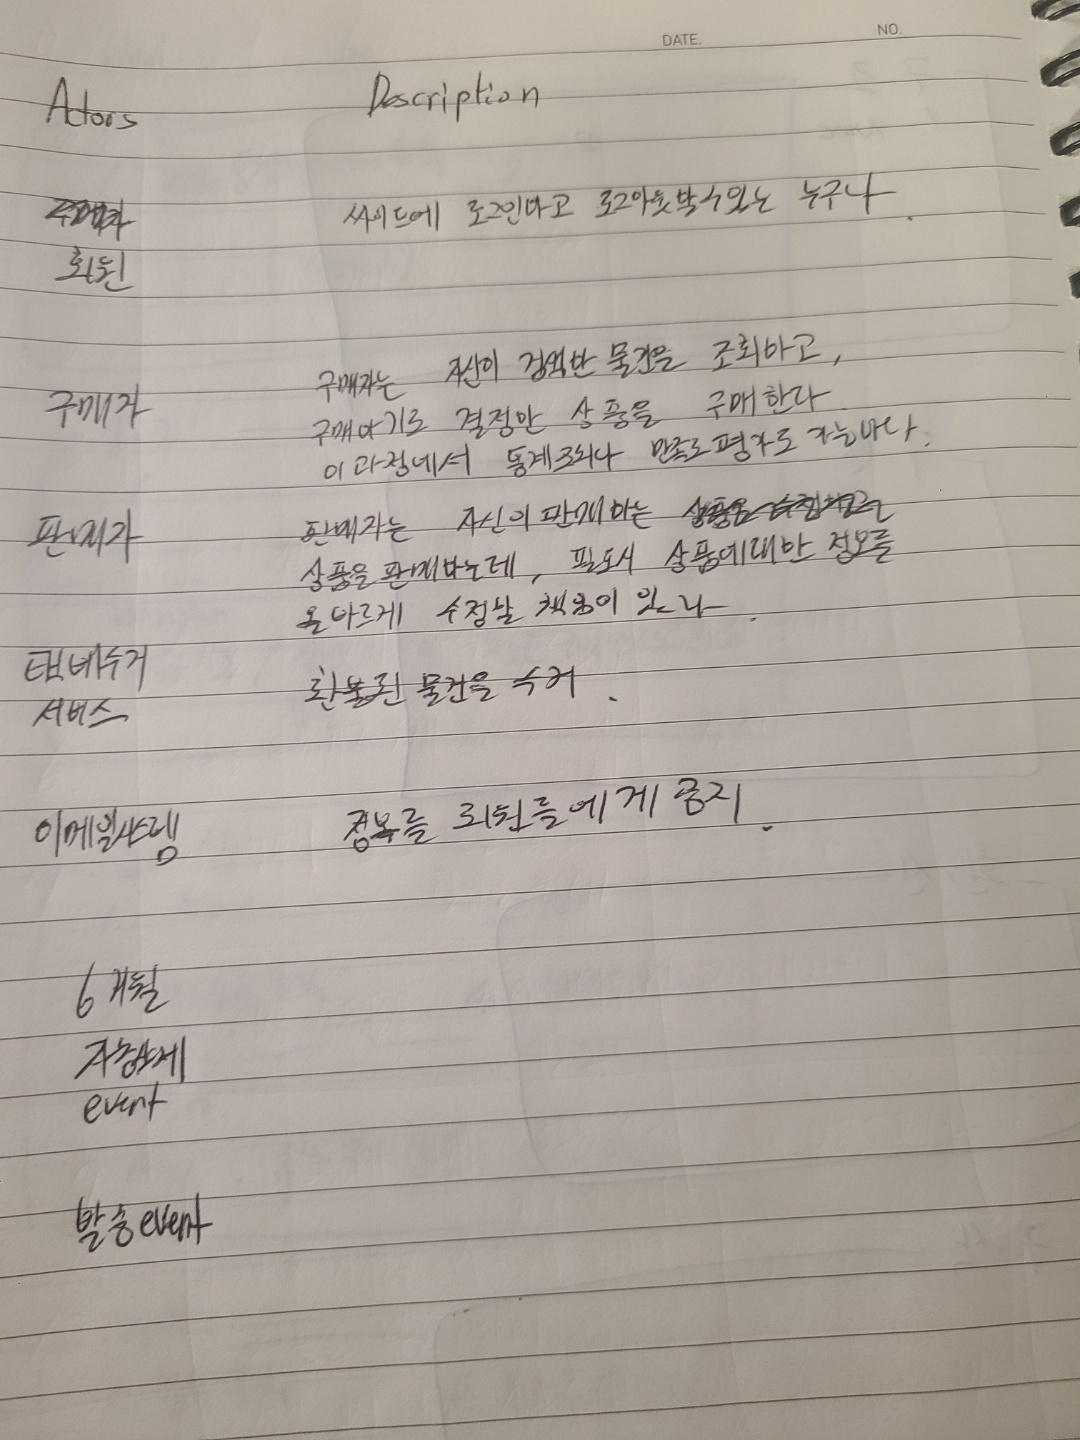 DATE. NO.
Actors Description
싸이트에 로그인하고 로그아웃할수있는 누구나.
회원
구매자 구매자는 자신이 검색한 물건을 조회하고,
구매하기로 결정한 상품을 구매한다
이 과정에서 통계조회나 만족도평가도 가능하다.
판매자 판매자는 자신이 판매하는
상품을 판매하는데, 필요시 상품에대한 정보를
올바르게 수정할 책임이 있다.
택배수거 환불된 물건을 수거.
서비스
이메일시스템 정보를 회원들에게 공지.
6개월
자동삭제
event
발송 event